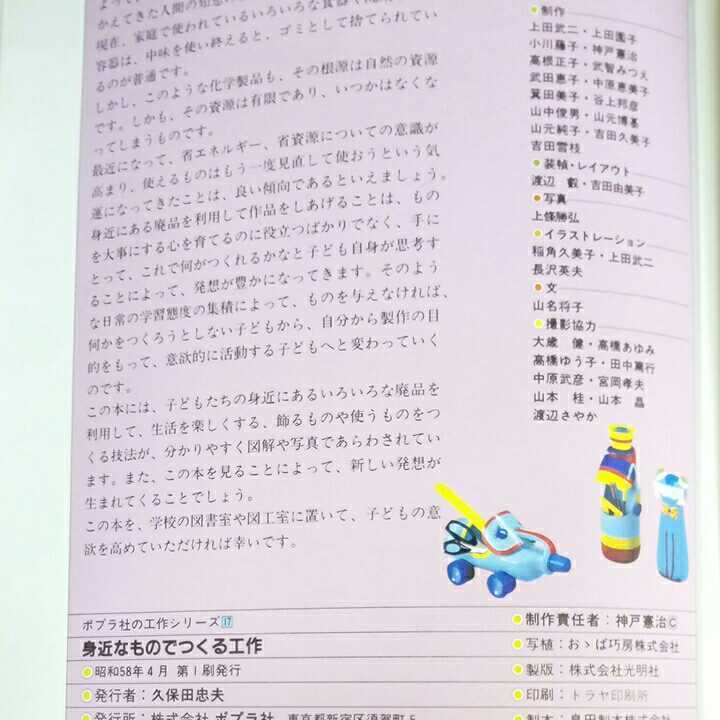 かえてきた人間の知恵の
現在、家庭で使われているいろいろな食器や
容器は、中味を使い終えると、ゴミとして捨てられてい
るのが普通です。
しかし、このような化学製品も、その根源は自然の資源
です。しかも、その資源は有限であり、いつかはなくな
ってしまうものです。
最近になって、省エネルギー、省資源についての意識が
高まり、使えるものはもう一度見直して使おうという気
運になってきたことは、良い傾向であるといえましょう。
身近にある廃品を利用して作品をしあげることは、もの
を大事にする心を育てるのに役立つばかりでなく、手に
とって、これで何がつくれるかなと子ども自身が思考す
ることによって、発想が豊かになってきます。そのよう
な日常の学習態度の集積によって、ものを与えなければ、
何かをつくろうとしない子どもから、自分から製作の目
的をもって、意欲的に活動する子どもへと変わっていく
のです。
この本には、子どもたちの身近にあるいろいろな廃品を
利用して、生活を楽しくする、飾るものや使うものをつ
くる技法が、分かりやすく図解や写真であらわされてい
ます。また、この本を見ることによって、新しい発想が
生まれてくることでしょう。
この本を、学校の図書室や図工室に置いて、子どもの意
欲を高めていただければ幸いです。
制作
上田武二・上田園子
小川藤子・神戸憲治
高根正子・武智みつえ
武田恵子・中原恵美子
箕田美子・谷上邦彦
山中俊男・山元博基
山元純子・吉田久美子
吉田雪枝
装幀・レイアウト
渡辺 叡・吉田由美子
写真
上條勝弘
イラストレーション
稲角久美子・上田武二
長沢英夫
文
山名将子
撮影協力
大歳 健・高橋あゆみ
高橋ゆう子・田中篤行
中原武彦・宮岡孝夫
山本 桂・山本 晶
渡辺さやか
ポプラ社の工作シリーズ17
身近なものでつくる工作
昭和58年4月 第1刷発行
発行者：久保田忠夫
発行所：株式会社 ポプラ社 東京都新宿区須賀町5
制作責任者：神戸憲治©
写植：おゝば巧房株式会社
製版：株式会社光明社
印刷：トラヤ印刷所
製本：島田製本株式会社